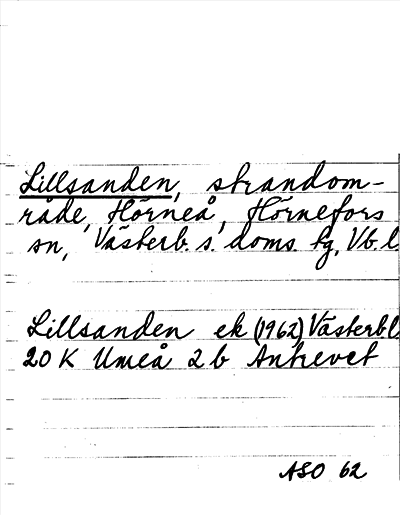 Lillsanden, strandom-
råde, Hörneå, Hörnefors
sn, Västerb. s. doms. tg, Vb. l.
Lillsanden ek (1962) Västerbl.
20 K Umeå 2 b Antrevet
ASO 62